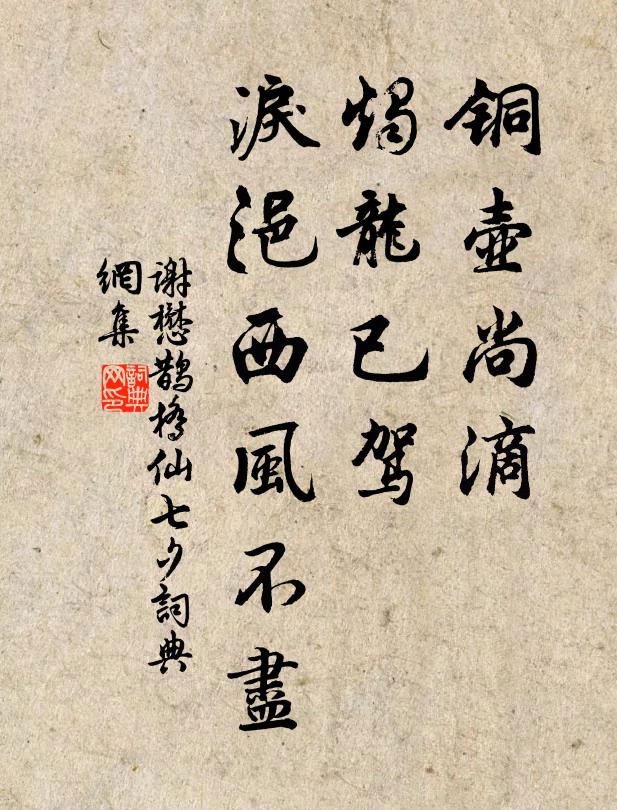 铜壶尚滴
燭龍已驾
淚浥西風不盡
谢懋鵲橋仙七夕詞典
網集
詞典
网印